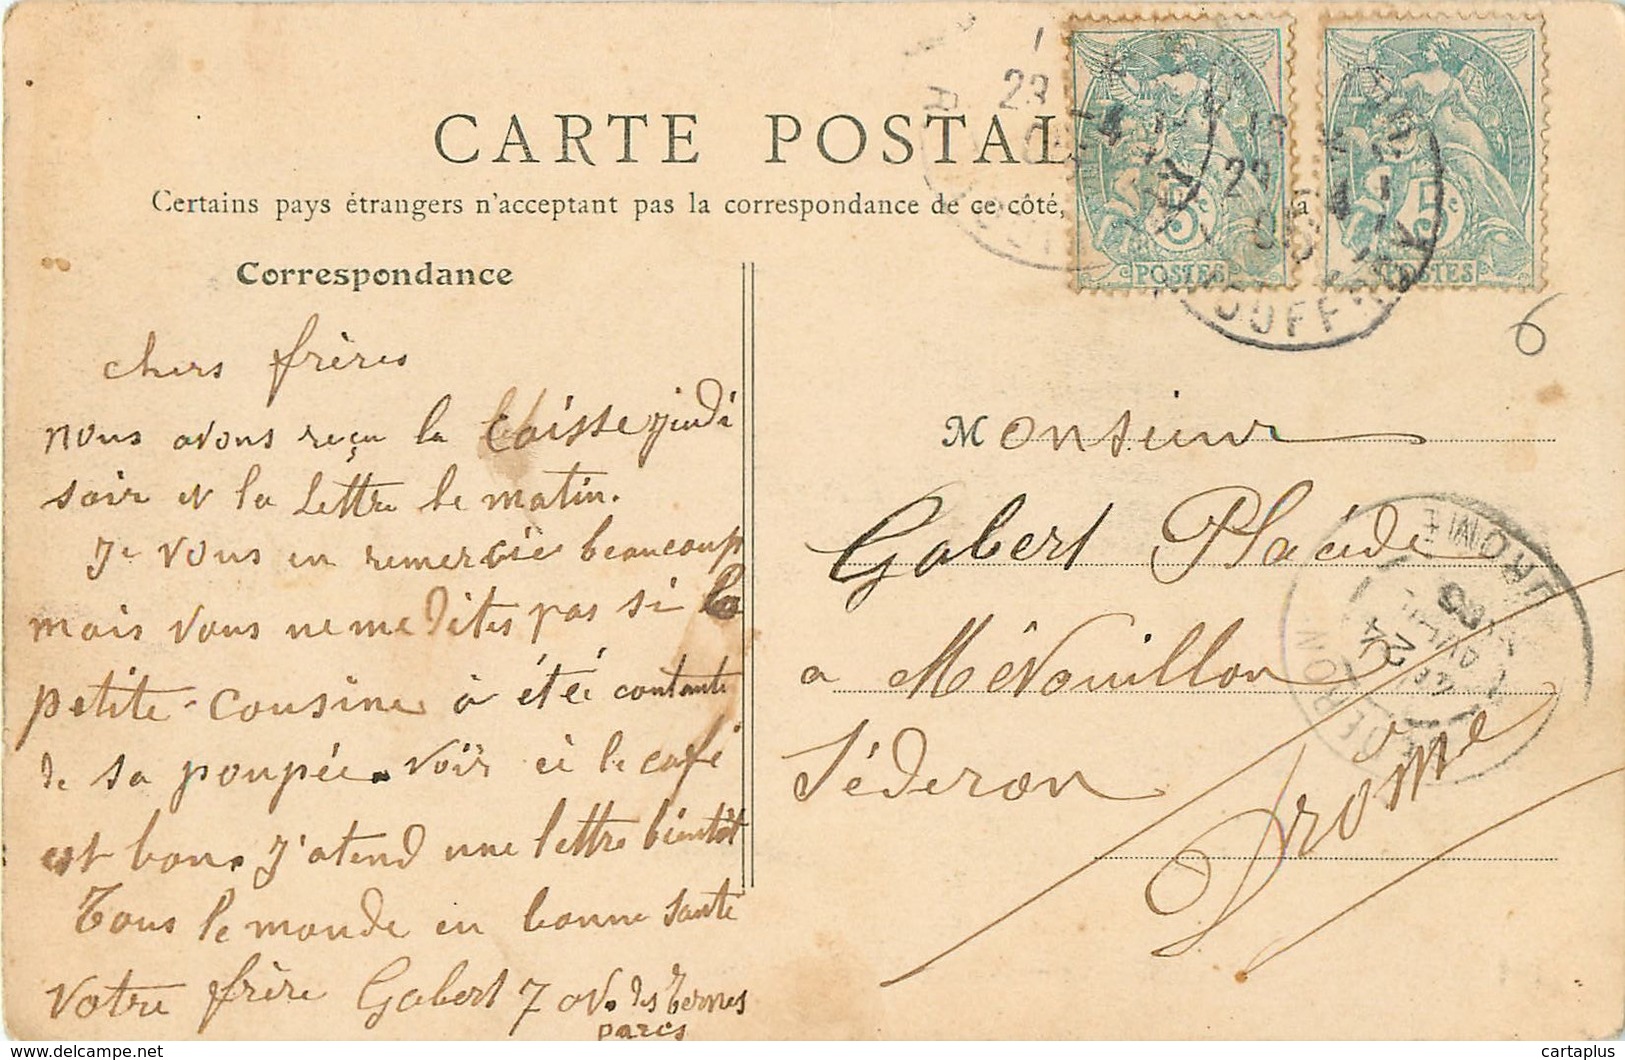 CARTE POSTAL
Certains pays étrangers n'acceptent pas la correspondance de ce côté,
Correspondance
chers frères
nous avons reçu la Caisse jeudi
soir et la Lettre le matin.
Je vous en remercie beaucoup
mais vous ne me dites pas si la
petite cousine à été contante
de sa poupée. voir ci le café
est bon. J'atend une lettre bientôt
Tous le monde en bonne santé
votre frère Gabert 7 av. des Ternes
paris
POSTES
5c
POSTES
5c
29
6
Monsieur
Gabert Placide
a Mévouillon
Séderon
Drome
DROME
cartaplus